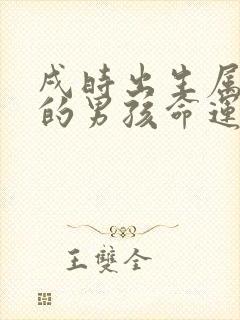 戌時出生属
的男孩命運
王雙全